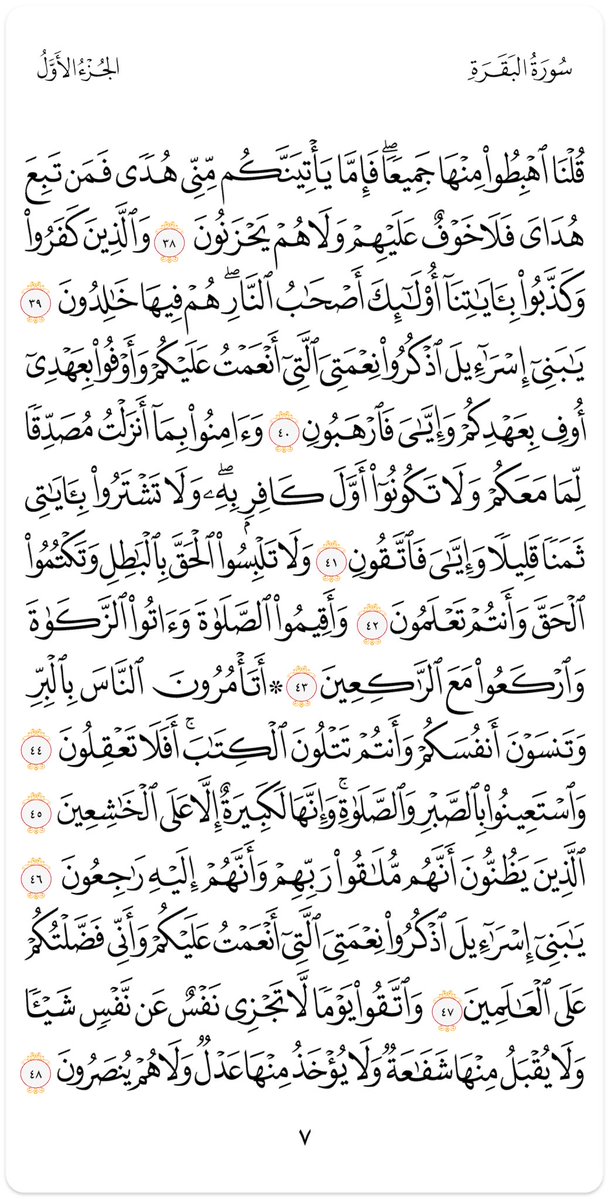 سُورَةُ البَقَرَةِ
الجُزْءُ الأَوَّلُ
قُلْنَا ٱهْبِطُوا۟ مِنْهَا جَمِيعًۭا ۖ فَإِمَّا يَأْتِيَنَّكُم مِّنِّى هُدًۭى فَمَن تَبِعَ
هُدَاىَ فَلَا خَوْفٌ عَلَيْهِمْ وَلَا هُمْ يَحْزَنُونَ ٣٨ وَٱلَّذِينَ كَفَرُوا۟
وَكَذَّبُوا۟ بِـَٔايَـٰتِنَآ أُو۟لَـٰٓئِكَ أَصْحَـٰبُ ٱلنَّارِ ۖ هُمْ فِيهَا خَـٰلِدُونَ ٣٩
يَـٰبَنِىٓ إِسْرَٰٓءِيلَ ٱذْكُرُوا۟ نِعْمَتِىَ ٱلَّتِىٓ أَنْعَمْتُ عَلَيْكُمْ وَأَوْفُوا۟ بِعَهْدِىٓ
أُوفِ بِعَهْدِكُمْ وَإِيَّـٰىَ فَٱرْهَبُونِ ٤٠ وَءَامِنُوا۟ بِمَآ أَنزَلْتُ مُصَدِّقًۭا
لِّمَا مَعَكُمْ وَلَا تَكُونُوٓا۟ أَوَّلَ كَافِرٍۭ بِهِۦ ۖ وَلَا تَشْتَرُوا۟ بِـَٔايَـٰتِى
ثَمَنًۭا قَلِيلًۭا وَإِيَّـٰىَ فَٱتَّقُونِ ٤١ وَلَا تَلْبِسُوا۟ ٱلْحَقَّ بِٱلْبَـٰطِلِ وَتَكْتُمُوا۟
ٱلْحَقَّ وَأَنتُمْ تَعْلَمُونَ ٤٢ وَأَقِيمُوا۟ ٱلصَّلَوٰةَ وَءَاتُوا۟ ٱلزَّكَوٰةَ
وَٱرْكَعُوا۟ مَعَ ٱلرَّٰكِعِينَ ٤٣ ۞ أَتَأْمُرُونَ ٱلنَّاسَ بِٱلْبِرِّ
وَتَنسَوْنَ أَنفُسَكُمْ وَأَنتُمْ تَتْلُونَ ٱلْكِتَـٰبَ ۚ أَفَلَا تَعْقِلُونَ ٤٤
وَٱسْتَعِينُوا۟ بِٱلصَّبْرِ وَٱلصَّلَوٰةِ ۚ وَإِنَّهَا لَكَبِيرَةٌ إِلَّا عَلَى ٱلْخَـٰشِعِينَ ٤٥
ٱلَّذِينَ يَظُنُّونَ أَنَّهُم مُّلَـٰقُوا۟ رَبِّهِمْ وَأَنَّهُمْ إِلَيْهِ رَٰجِعُونَ ٤٦
يَـٰبَنِىٓ إِسْرَٰٓءِيلَ ٱذْكُرُوا۟ نِعْمَتِىَ ٱلَّتِىٓ أَنْعَمْتُ عَلَيْكُمْ وَأَنِّى فَضَّلْتُكُمْ
عَلَى ٱلْعَـٰلَمِينَ ٤٧ وَٱتَّقُوا۟ يَوْمًۭا لَّا تَجْزِى نَفْسٌ عَن نَّفْسٍۢ شَيْـًۭٔا
وَلَا يُقْبَلُ مِنْهَا شَفَـٰعَةٌۭ وَلَا يُؤْخَذُ مِنْهَا عَدْلٌۭ وَلَا هُمْ يُنصَرُونَ ٤٨
٧